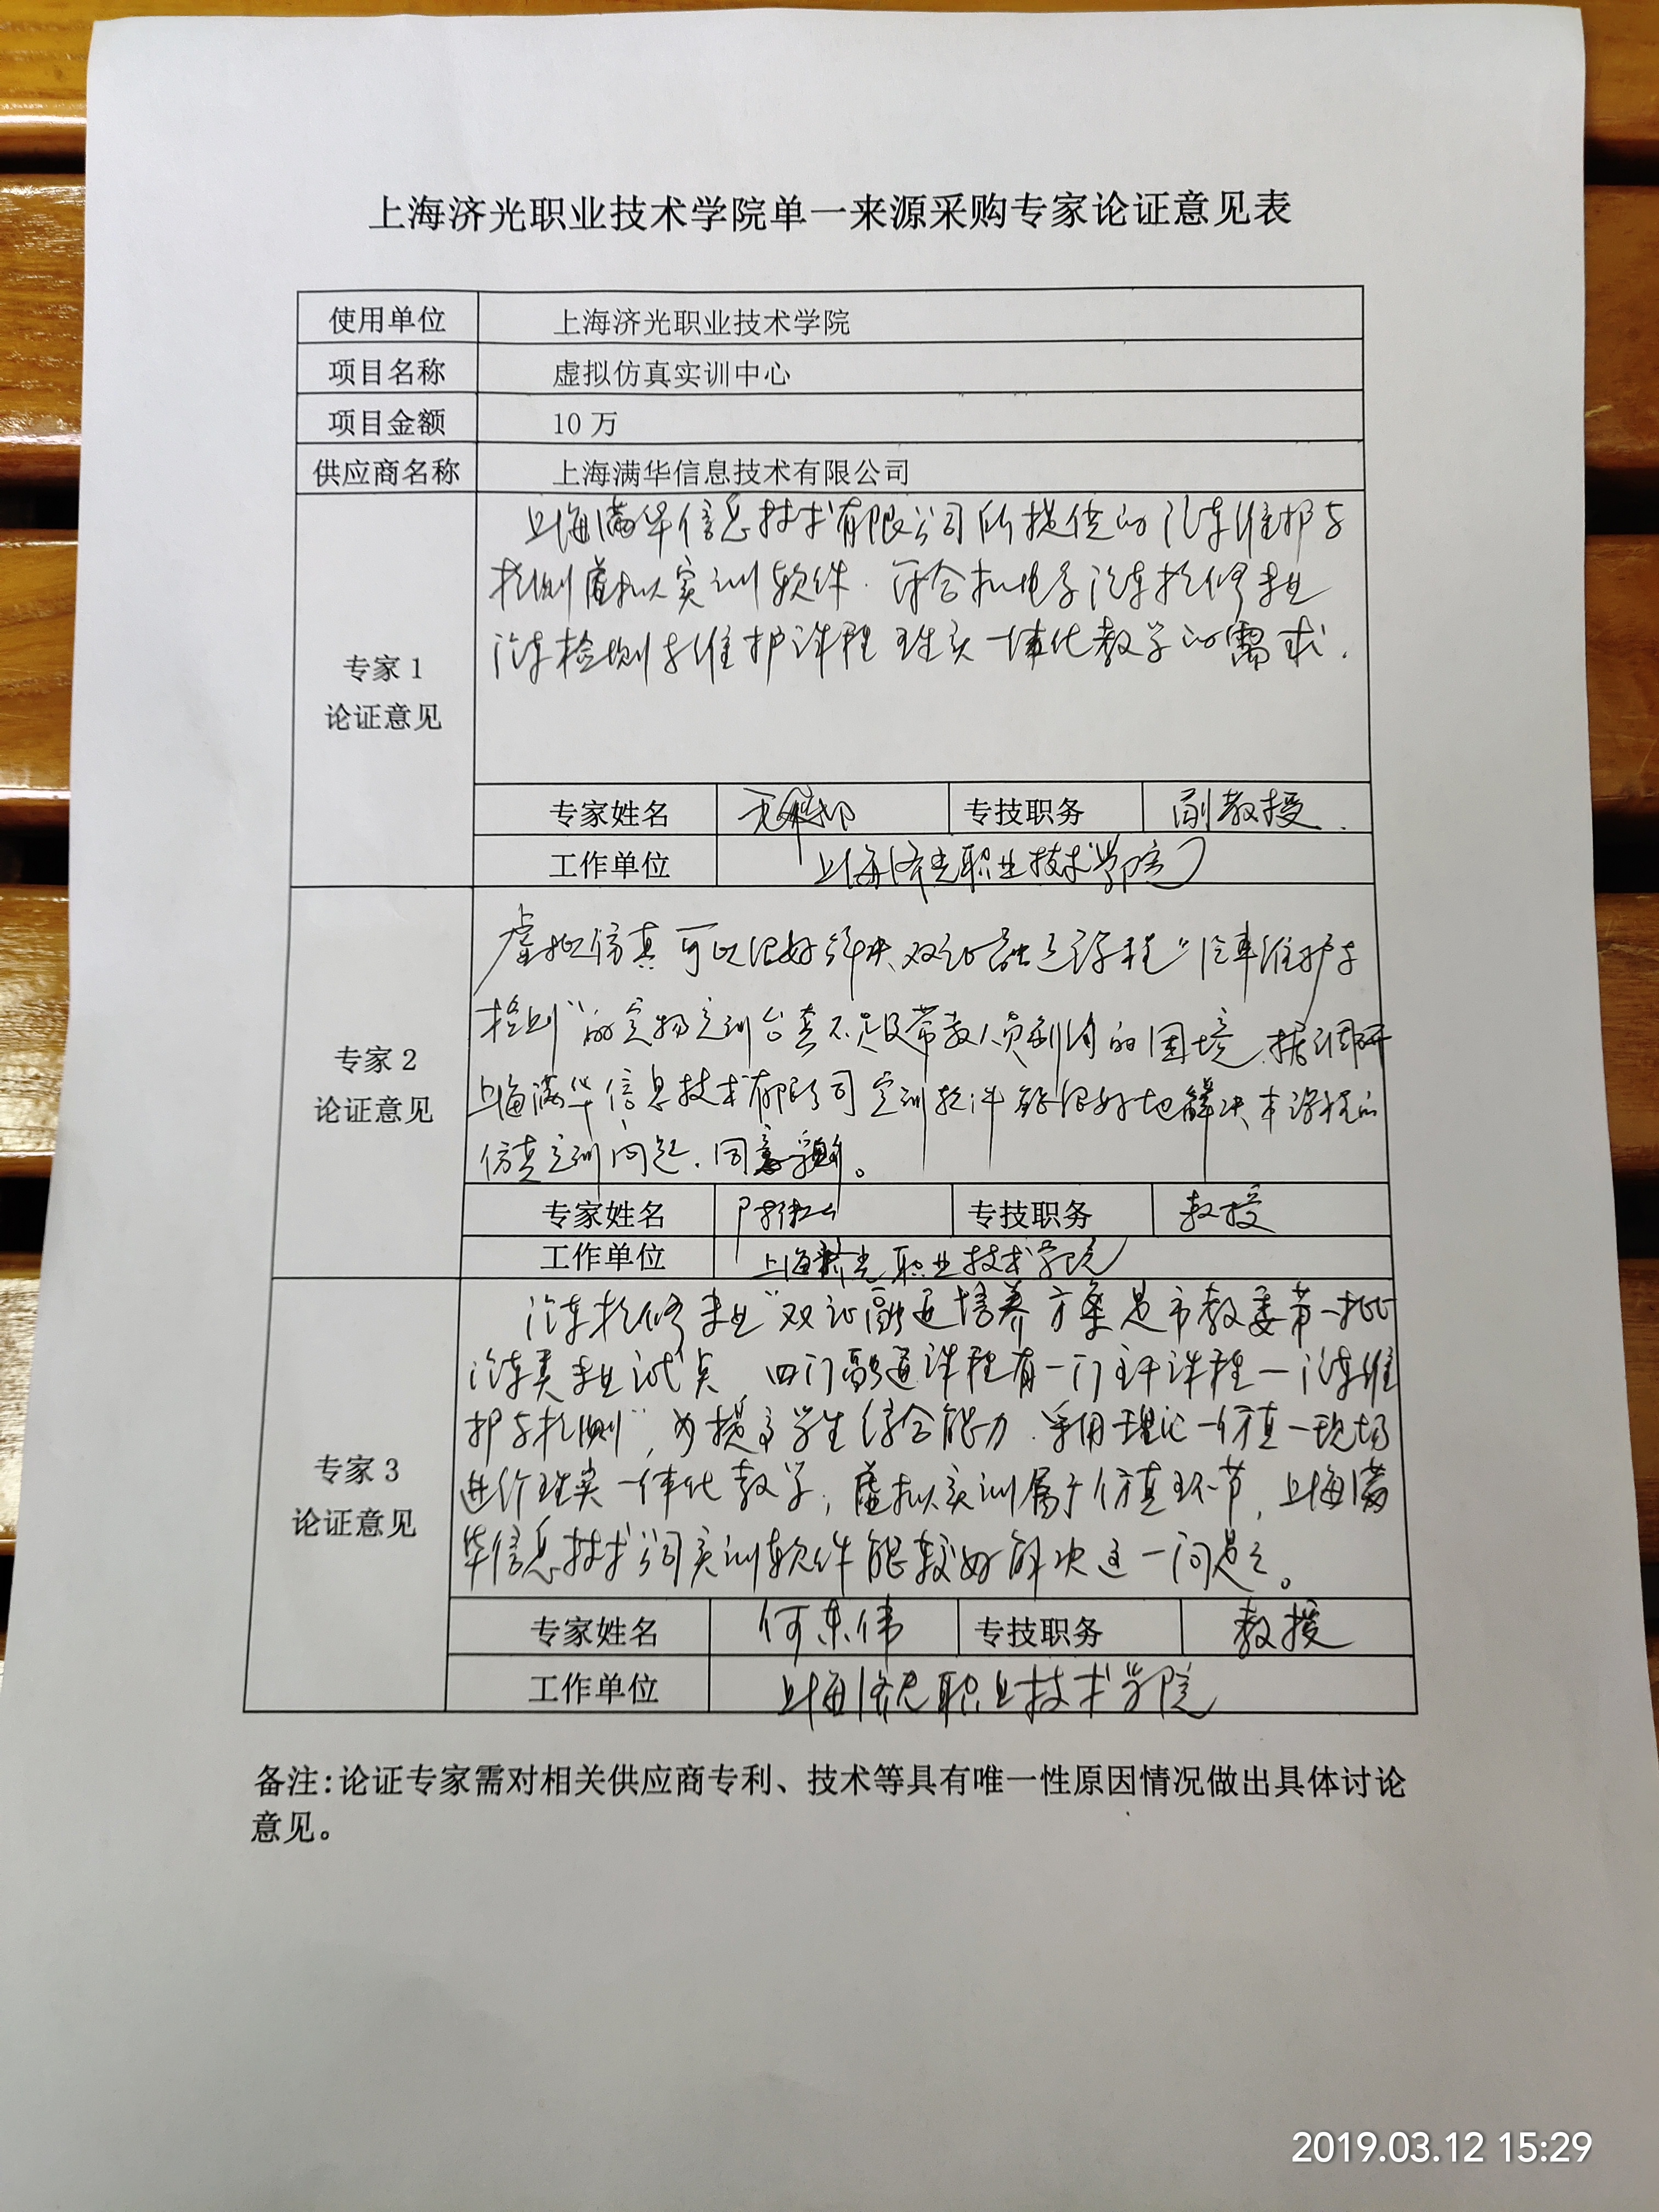 上海济光职业技术学院单一来源采购专家论证意见表
使用单位 上海济光职业技术学院
项目名称 虚拟仿真实训中心
项目金额 10 万
供应商名称 上海满华信息技术有限公司
专家 1
论证意见
上海满华信息技术有限公司所提供的汽车维护与
检测虚拟实训软件.符合机电系汽车检修专业
汽车检测与维护课程理实一体化教学的需求.
专家姓名 专技职务 副教授.
工作单位 上海济光职业技术学院
专家 2
论证意见
虚拟仿真可以很好解决双证融通课程"汽车维护与
检测"的实物实训台套不足及带教人员 的困境.据调研
上海满华信息技术有限公司实训软件能很好地解决本课程的
仿真实训问题.同意
专家姓名 专技职务 教授
工作单位 上海济光职业技术学院
专家 3
论证意见
汽车检修专业"双证融通培养方案是市教委第一批
汽车类专业试点 四门融通课程有一门主干课程一汽车维
护与检测",为提高学生综合能力.采用理论一仿真一现场
进行理实一体化教学,虚拟实训属于仿真环节,上海满
华信息技术公司实训软件能较好解决这一问题。
专家姓名 何东伟 专技职务 教授
工作单位 上海济光职业技术学院
备注:论证专家需对相关供应商专利、技术等具有唯一性原因情况做出具体讨论
意见。
2019.03.12 15:29